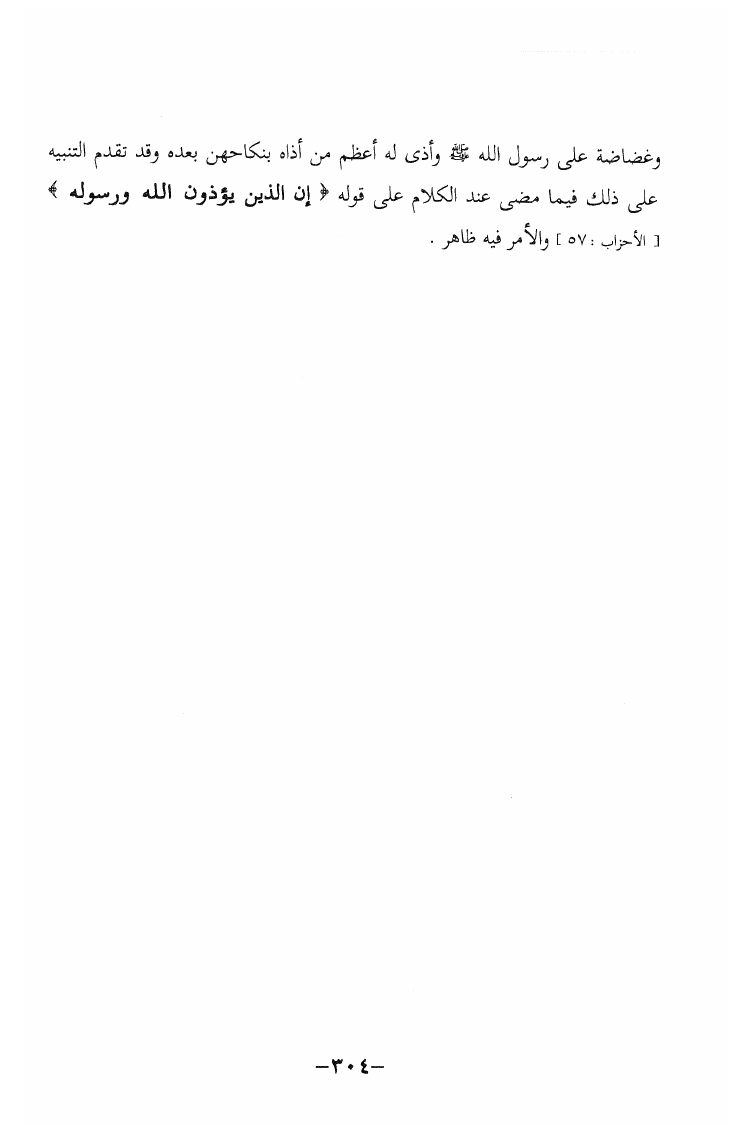 وغضاضة على رسول الله ﷺ وأذى له أعظم من أذاه بنكاحهن بعده وقد تقدم التنبيه
على ذلك فيما مضى عند الكلام على قوله ﴿ إن الذين يؤذون الله ورسوله ﴾
[ الأحزاب : ٥٧ ] والأمر فيه ظاهر .
-٣٠٤-